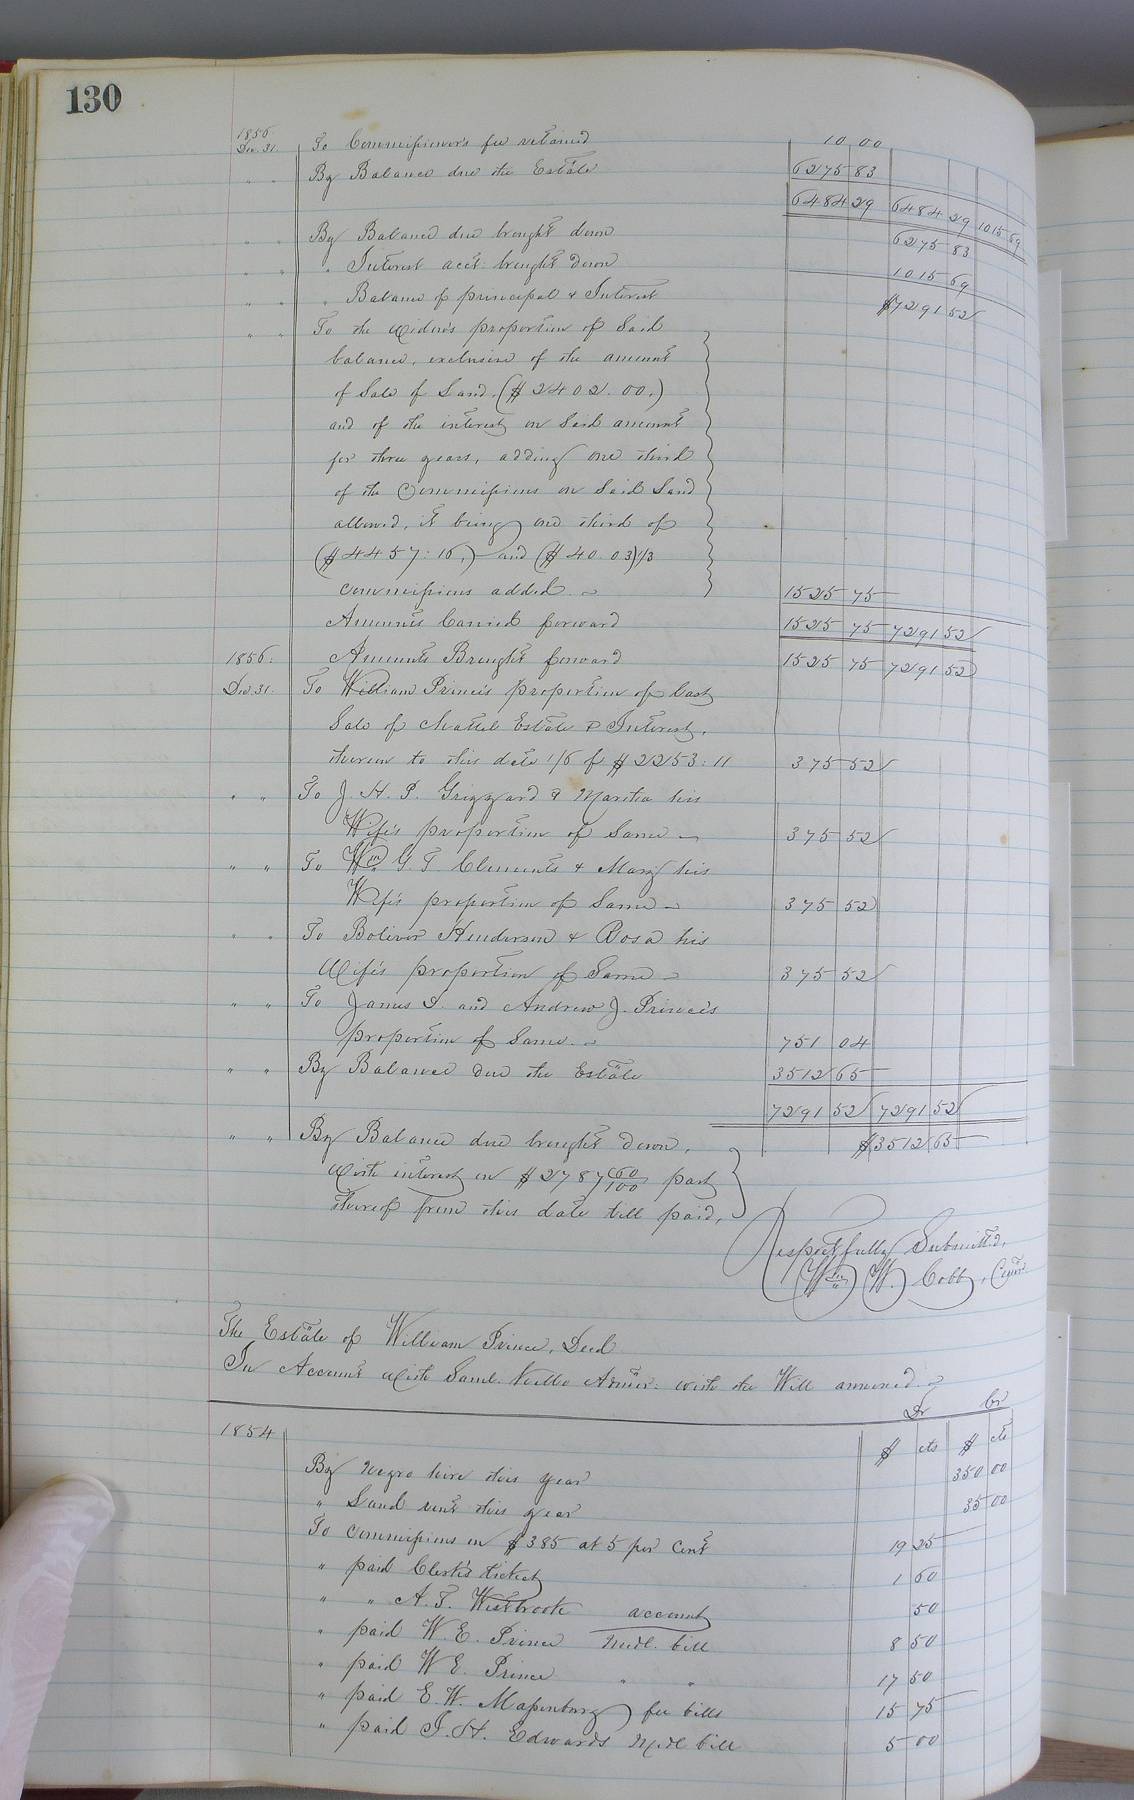 130
1856
Dec. 31. To Commissioner's fee retained 10 00
" " By Balance due the Estate 6275 83
6484 29 6484 29 1015 69
" " By Balance due brought down 6275 83
" " " Interest acct. brought down 1015 69
" " " Balance of principal & Interest $7291 52
" " To the Widow's proportion of Said
balance, exclusive of the amount
of Sale of Land, ($2402.00.)
and of the interest on Said amount
for three years, adding one third
of the Commissions on Said Land
allowed, it being one third of
($4457:16,) and ($40.03) 1/3
commissions added 1525 75
Amounts Carried forward 1525 75 7291 52
1856: Amounts Brought forward 1525 75 7291 52
Dec. 31. To William Prince's proportion of last
Sale of Chattel Estate & Interest,
thereon to this date 1/6 of $2253:11 375 52
" " To J. H. P. Grizzard & Martha his
Wife's proportion of Same 375 52
" " To Wm G. T. Clements & Mary his
Wife's proportion of Same 375 52
" " To Boliver Henderson & Rosa his
Wife's proportion of Same 375 52
" " To James D. and Andrew J. Prince's
proportion of Same 751 04
" " By Balance due the Estate 3512 65
7291 52 7291 52
" " By Balance due brought down, $3512 65
with interest on $2787 60/100 part
thereof from this date till paid,
Respectfully Submitted,
Wm W. Cobb, Comr.
The Estate of William Prince, Decd
In Account with Saml. Kello Admr. with the Will annexed
Dr Cr
1854 $ cts $ cts
By Negro hire this year 350 00
" Land rent this year 35 00
To commissions on $385 at 5 per Cent 19 25
" paid Clerk's ticket 1 60
" " A. T. Westbrook account 50
" paid W. E. Prince Medl. bill 8 50
" paid W E. Prince " " 17 50
" paid E. W. Massenburg fee bills 15 75
" paid J. H. Edwards Medl bill 5 00